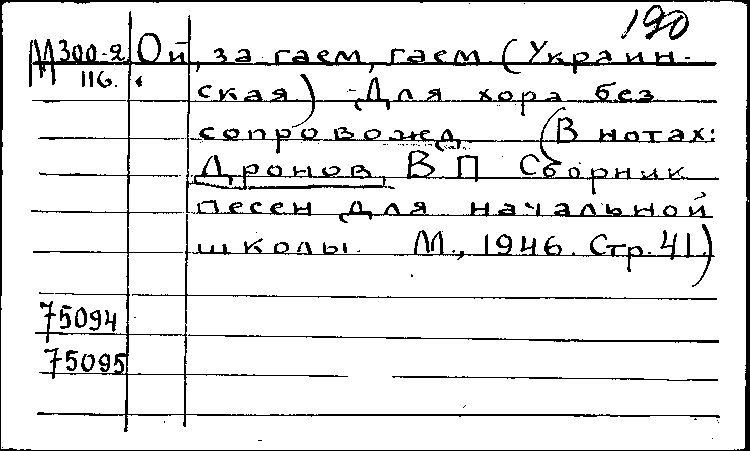 190
М300-2 Ой, за гаем, гаем (Украин-
116. ская) Для хора без
сопровожд (В нотах:
Дронов, В П Сборник
песен для начальной
школы. М., 1946. Стр. 41.)
75094
75095